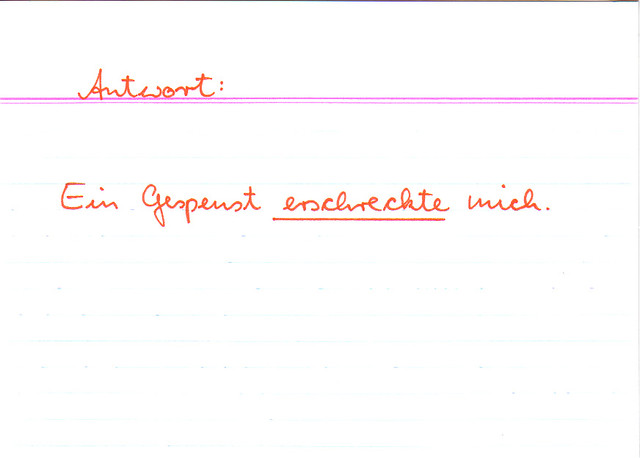 Antwort:
Ein Gespenst erschreckte mich.